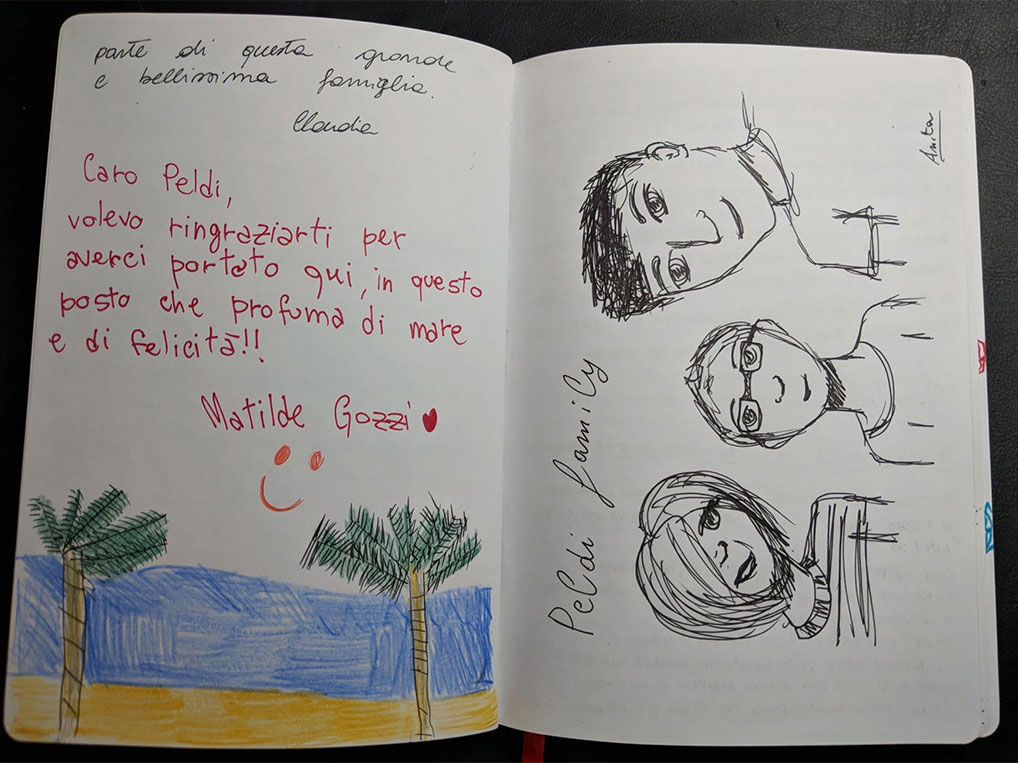 parte di questa grande
e bellissima famiglia.
Claudia
Caro Peldi,
volevo ringraziarti per
averci portato qui, in questo
posto che profuma di mare
e di felicità!!
Matilde Gozzi
Peldi family
Anita